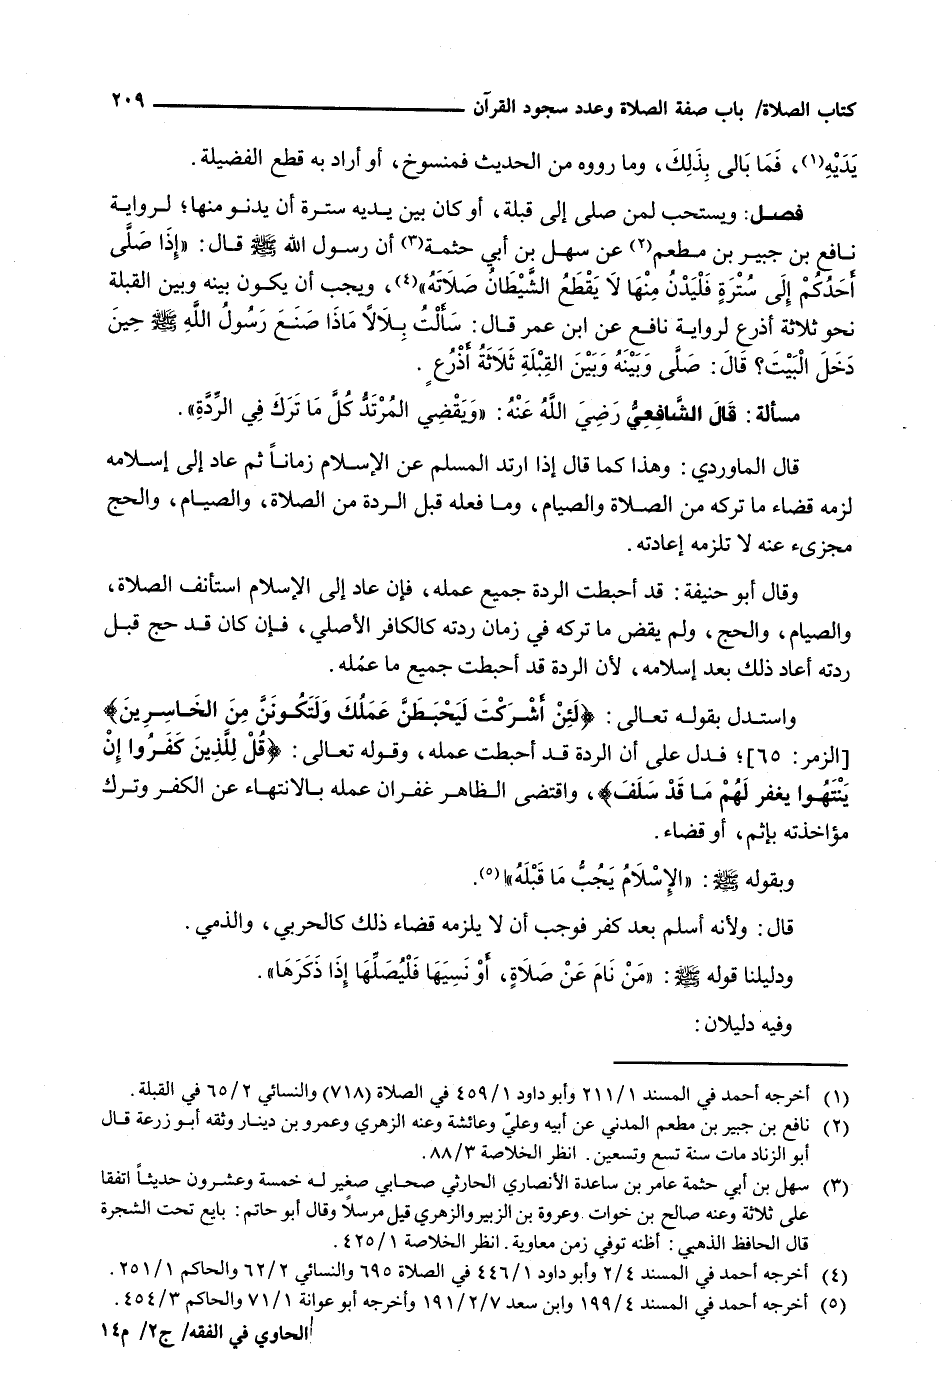 كتاب الصلاة/ باب صفة الصلاة وعدد سجود القرآن ٢٠٩
يَدَيْهِ(١)، فَمَا بَالى بِذَلِكَ، وما رووه من الحديث فمنسوخ، أو أراد به قطع الفضيلة.
فصل: ويستحب لمن صلى إلى قبلة، أو كان بين يديه سترة أن يدنو منها؛ لرواية
نافع بن جبير بن مطعم(٢) عن سهل بن أبي حثمة(٣) أن رسول الله ﷺ قال: «إِذَا صَلَّى
أَحَدُكُمْ إِلَى سُتْرَةٍ فَلْيَدْنُ مِنْهَا لَا يَقْطَعُ الشَّيْطَانُ صَلَاتَهُ»(٤)، ويجب أن يكون بينه وبين القبلة
نحو ثلاثة أذرع لرواية نافع عن ابن عمر قال: سَأَلْتُ بِلَالاً مَاذَا صَنَعَ رَسُولُ اللَّهِ ﷺ حِينَ
دَخَلَ الْبَيْتَ؟ قَالَ: صَلَّى وَبَيْنَهُ وَبَيْنَ القِبْلَةِ ثَلَاثَةُ أَذْرُعٍ.
مسألة: قَالَ الشَّافِعِيُّ رَضِيَ اللَّهُ عَنْهُ: «وَيَقْضِي المُرْتَدُّ كُلَّ مَا تَرَكَ فِي الرِّدَّةِ».
قال الماوردي: وهذا كما قال إذا ارتد المسلم عن الإسلام زماناً ثم عاد إلى إسلامه
لزمه قضاء ما تركه من الصلاة والصيام، وما فعله قبل الردة من الصلاة، والصيام، والحج
مجزىء عنه لا تلزمه إعادته.
وقال أبو حنيفة: قد أحبطت الردة جميع عمله، فإن عاد إلى الإسلام استأنف الصلاة،
والصيام، والحج، ولم يقض ما تركه في زمان ردته كالكافر الأصلي، فإن كان قد حج قبل
ردته أعاد ذلك بعد إسلامه، لأن الردة قد أحبطت جميع ما عمُله.
واستدل بقوله تعالى: ﴿لَئِنْ أَشْرَكْتَ لَيَحْبَطَنَّ عَمَلُكَ وَلَتَكُونَنَّ مِنَ الخَاسِرِينَ﴾
[الزمر: ٦٥]؛ فدل على أن الردة قد أحبطت عمله، وقوله تعالى: ﴿قُلْ لِلَّذِينَ كَفَرُوا إِنْ
يَنْتَهُوا يغفر لَهُمْ مَا قَدْ سَلَفَ﴾، واقتضى الظاهر غفران عمله بالانتهاء عن الكفر وترك
مؤاخذته بإثم، أو قضاء.
وبقوله ﷺ: «الإِسْلَامُ يَجُبُّ مَا قَبْلَهُ»(٥).
قال: ولأنه أسلم بعد كفر فوجب أن لا يلزمه قضاء ذلك كالحربي، والذمي.
ودليلنا قوله ﷺ: «مَنْ نَامَ عَنْ صَلَاةٍ، أَوْ نَسِيَهَا فَلْيُصَلِّهَا إِذَا ذَكَرَهَا».
وفيه دليلان:
(١) أخرجه أحمد في المسند ٢١١/١ وأبو داود ٤٥٩/١ في الصلاة (٧١٨) والنسائي ٦٥/٢ في القبلة.
(٢) نافع بن جبير بن مطعم المدني عن أبيه وعليّ وعائشة وعنه الزهري وعمرو بن دينار وثقه أبو زرعة قال
أبو الزناد مات سنة تسع وتسعين. انظر الخلاصة ٨٨/٣.
(٣) سهل بن أبي حثمة عامر بن ساعدة الأنصاري الحارثي صحابي صغير له خمسة وعشرون حديثاً اتفقا
على ثلاثة وعنه صالح بن خوات وعروة بن الزبير والزهري قيل مرسلاً وقال أبو حاتم: بايع تحت الشجرة
قال الحافظ الذهبي: أظنه توفي زمن معاوية. انظر الخلاصة ٤٢٥/١.
(٤) أخرجه أحمد في المسند ٢/٤ وأبو داود ٤٤٦/١ في الصلاة ٦٩٥ والنسائي ٦٢/٢ والحاكم ٢٥١/١.
(٥) أخرجه أحمد في المسند ١٩٩/٤ وابن سعد ١٩١/٢/٧ وأخرجه أبو عوانة ٧١/١ والحاكم ٤٥٤/٣.
الحاوي في الفقه/ ج٢/ م١٤